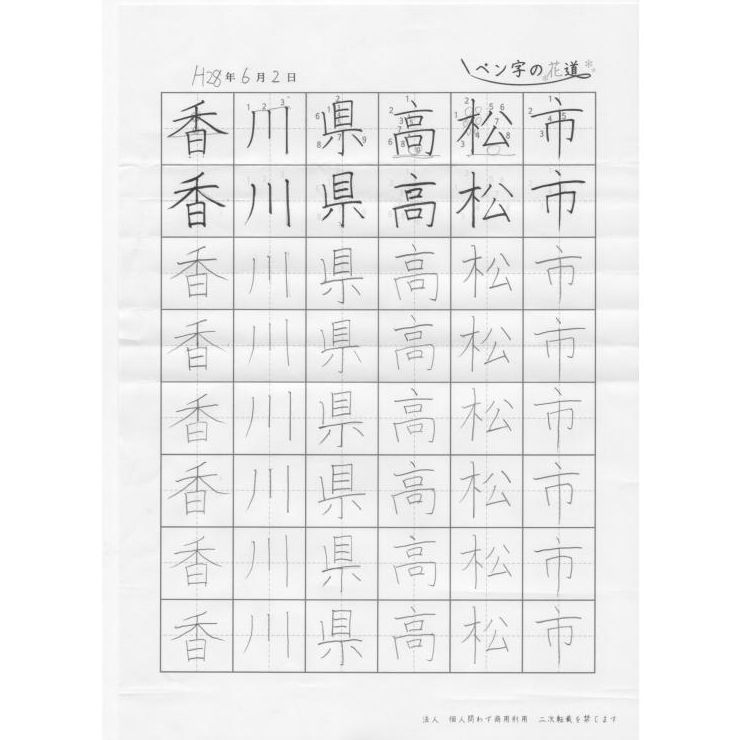 ペン字の花道
H28年6月2日
香川県高松市
香川県高松市
香川県高松市
香川県高松市
香川県高松市
香川県高松市
香川県高松市
香川県高松市
法人 個人問わず商用利用 二次転載を禁じます